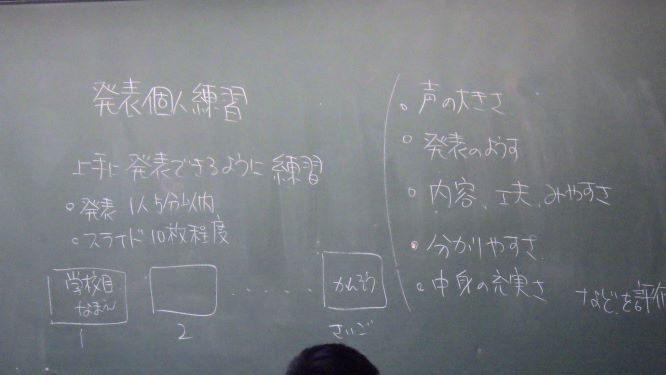 発表個人練習
上手に発表できるように練習
○ 発表 1人5分以内
○ スライド10枚程度
学校名
なまえ
1
2
・・・・・
かんそう
さいご
○ 声の大きさ
○ 発表のようす
○ 内容、工夫、みやすさ
○ 分かりやすさ
○ 中身の充実さ
などを評価